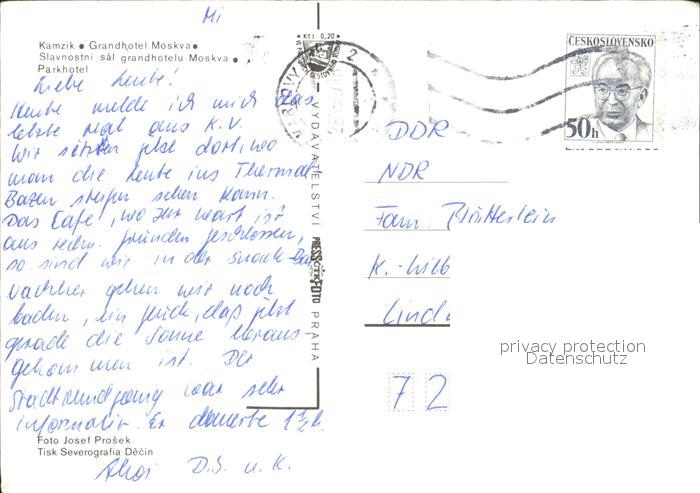 Mi
Kamzík • Grandhotel Moskva •
Slavnostní sál grandhotelu Moskva •
Parkhotel
Liebe Leute!
Heute melde ich mich das
letzte mal aus K.V.
Wir sitzen jetzt dort, wo
man die Leute ins Thermal
Baden steigen sehen kann.
Das Café, wo zur ist
aus techn. gründen geschlossen,
so sind wir in der Snack-Bar
nachher gehen wir noch
baden, ein glück, daß jetzt
gerade die Sonne heraus-
gekommen ist. Der
Stadtrundgang war sehr
informativ. Er dauerte 1 1/2 h.
Ahoi D.S. u. K.
Foto Josef Prošek
Tisk Severografia Děčín
Kčs 0,20
VYDAVATELSTVÍ
PRESSFOTO
PRAHA
KARLOVY
2
ČESKOSLOVENSKO
50h
DDR
NDR
Fam.
K.-
Lind
72
privacy protection
Datenschutz